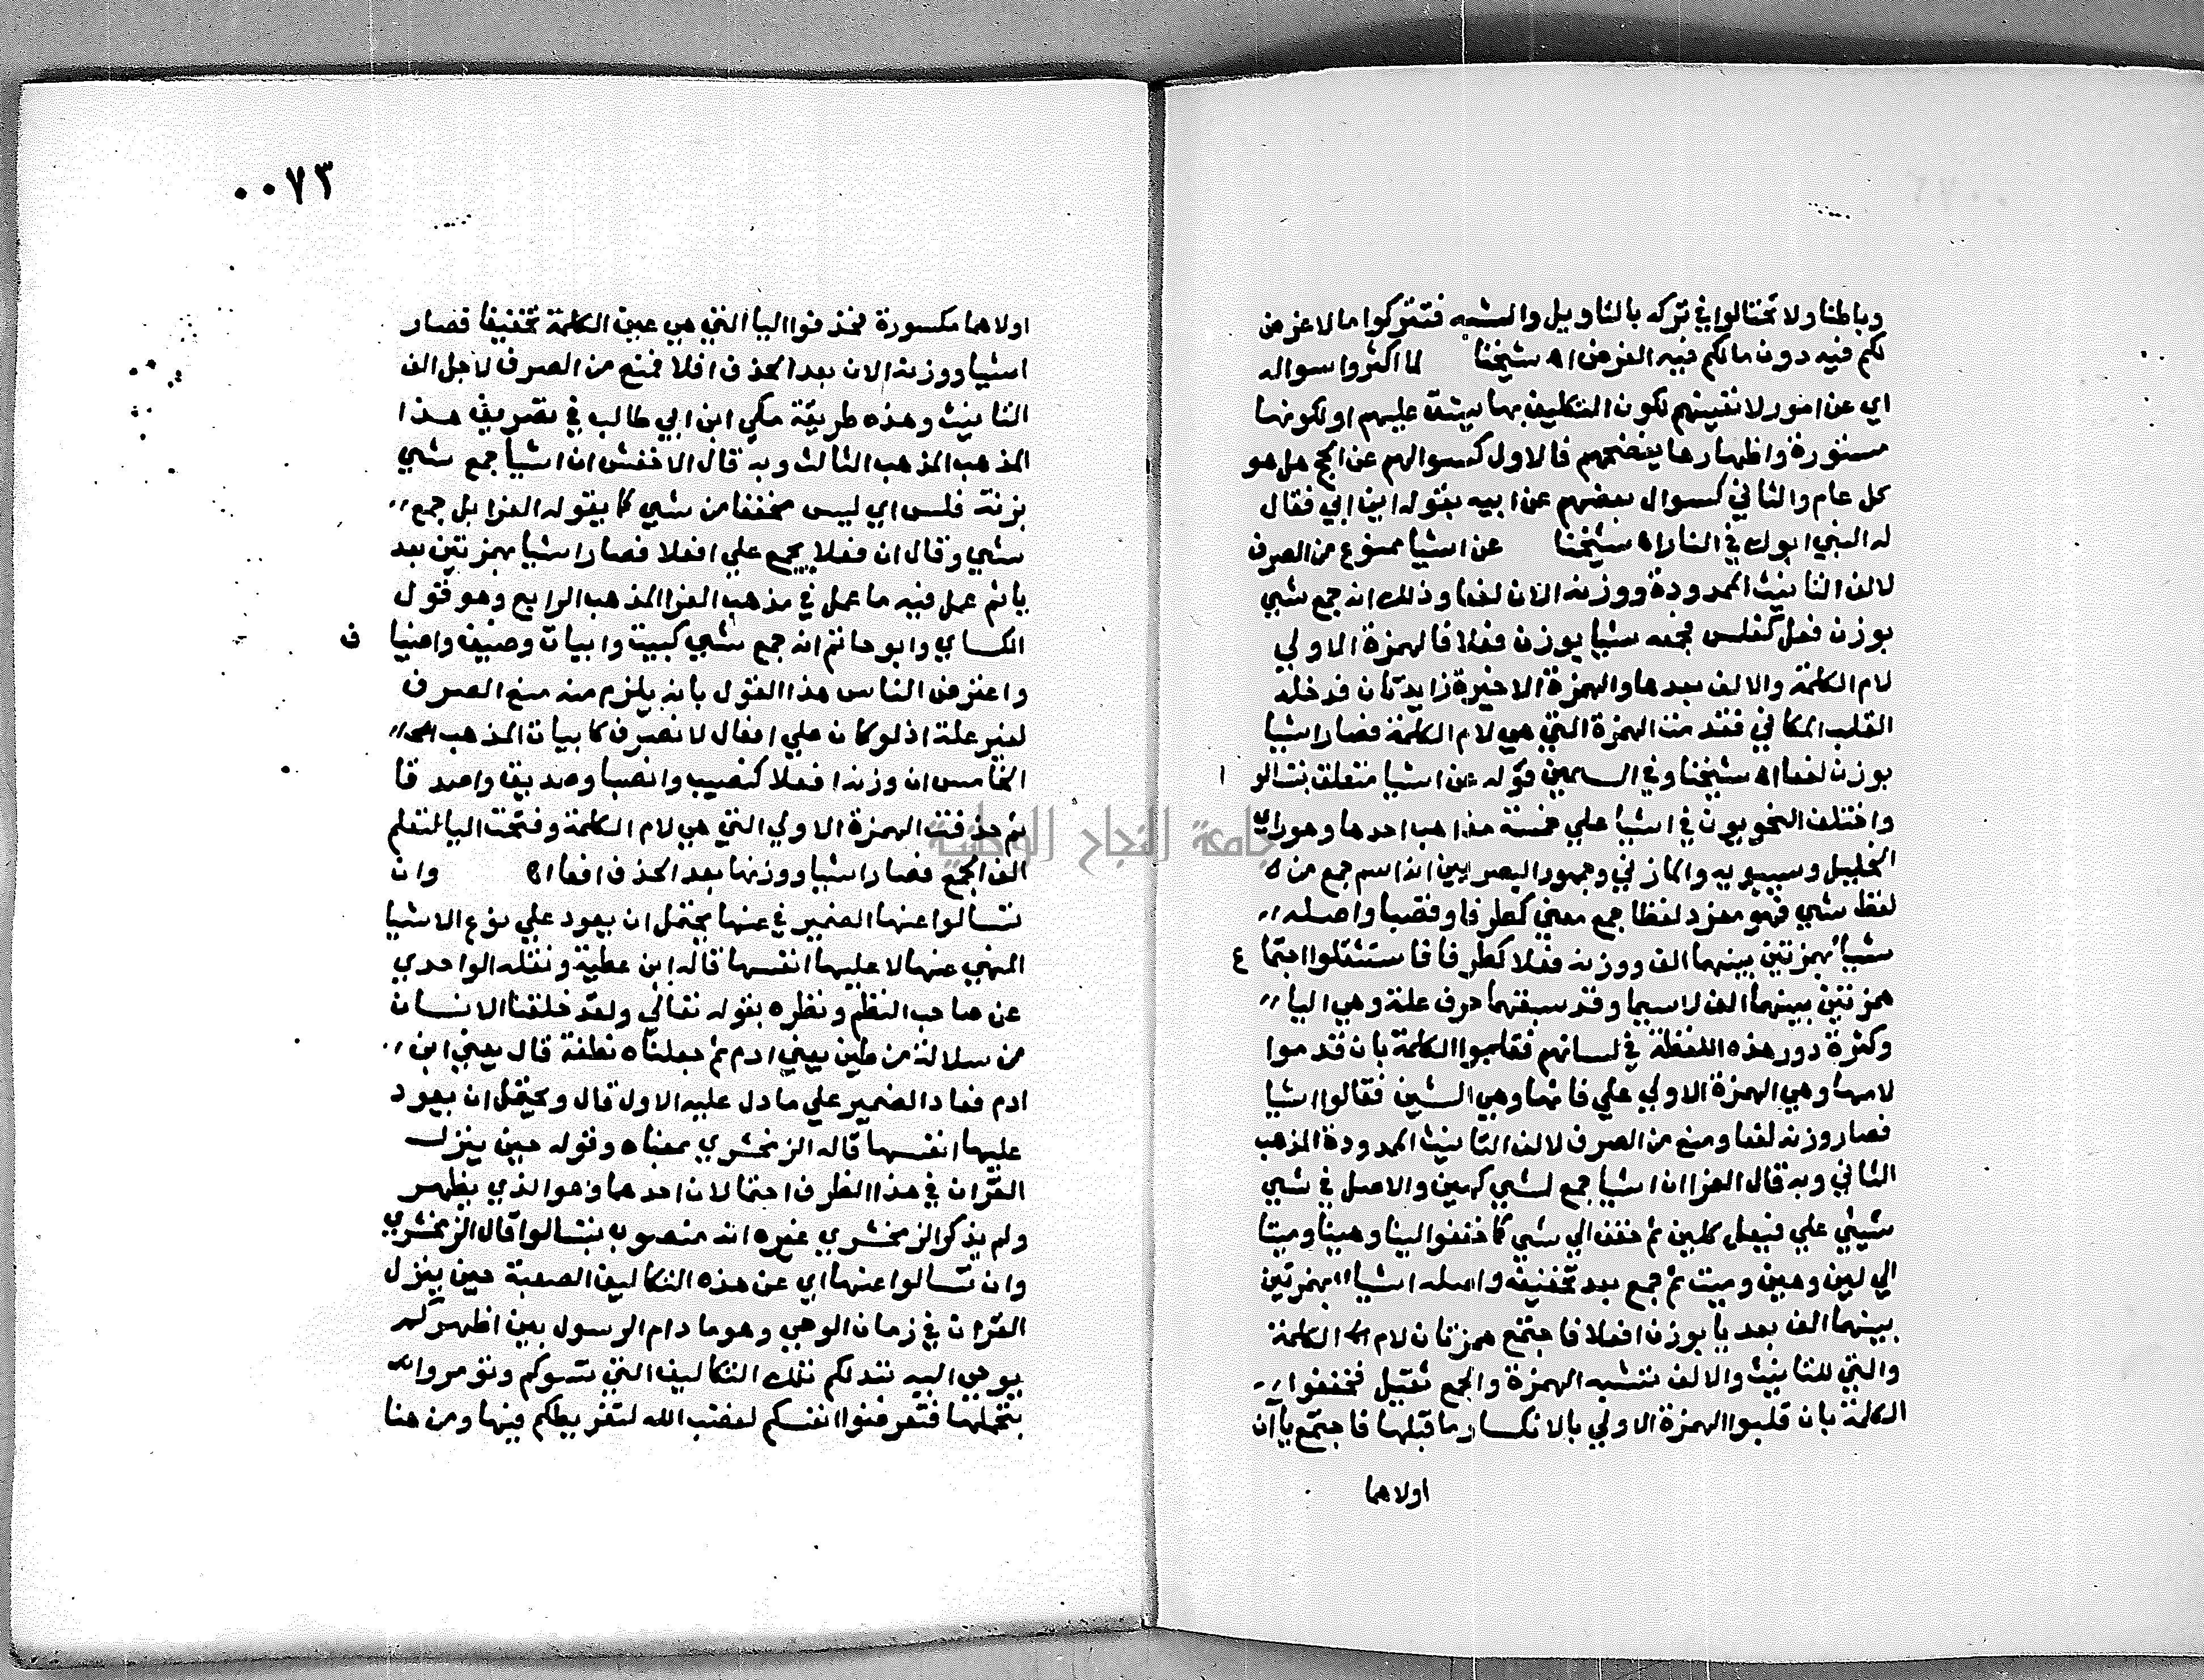 وباطنا ولا تحتالوا في تركه بالتاويل والشبه فتتركوا ما لا غرض
لكم فيه دون ما لكم فيه الغرض اه شيخنا لما اكثروا سواله
اي عن امور لا تعينهم لكون التكليف بها يشق عليهم او لكونها
مستورة واظهارها يفضحهم فالاول كسوالهم عن الحج هل هو
كل عام والثاني كسوال بعضهم عن ابيه بقوله اين ابي فقال
له النبي ابوك في النار اه شيخنا عن اشيا ممنوع من الصرف
لالف التانيث الممدودة ووزنه الان لفعا وذلك انه جمع شي
بوزن فعل كفلس فجمعه شيا بوزن فعلا فالهمزة الاولي
لام الكلمة والالف بعدها والهمزة الاخيرة زايدتان فدخله
القلب المكاني فقدمت الهمزة التي هي لام الكلمة فصار اشيا
بوزن لفعا اه شيخنا وفي السمين قوله عن اشيا متعلق بتسالو ا
واختلف النحويون في اشيا علي خمسة مذاهب احدها وهو راي
الخليل وسيبويه والمازني وجمهور البصريين انه اسم جمع من
لفظ شي فهو مفرد لفظا جمع معني كطرفا وقصبا واصله
شيا بهمزتين بينهما الف ووزنه فعلا كطرفا فاستثقلوا اجتما ع
همزتين بينهما الف لاسيما وقد سبقتهما حرف علة وهي اليا
وكثرة دور هذه اللفظة في لسانهم فقلبوا الكلمة بان قدموا
لامها وهي الهمزة الاولي علي فائها وهي الشين فقالوا اشيا
فصار وزنه لفعا ومنع من الصرف لالف التانيث الممدودة المذهب
الثاني وبه قال الفرا ان اشيا جمع لشي كهين والاصل في شي
شيئي علي فيعل كلين ثم خفف الي شي كما خففوا لينا وهينا وميتا
الي لين وهين وميت ثم جمع بعد تخفيفه واصله اشيا بهمزتين
بينهما الف بعد يا بوزن افعلا فاجتمع همزتان لام الكلمة
والتي للتانيث والالف تشبه الهمزة والجمع ثقيل فخففوا
الكلمة بان قلبوا الهمزة الاولي يا لانكسار ما قبلها فاجتمع ياآن
اولاهما
٠٠٧٣
اولاهما مكسورة فحذفوا اليا التي هي عين الكلمة تخفيفا فصار
اشيا ووزنه الان بعد الحذف افلا فمنع من الصرف لاجل الف
التانيث وهذه طريقة مكي ابن ابي طالب في تصريف هذا
المذهب المذهب الثالث وبه قال الاخفش ان اشيا جمع شي
بزنة فلس اي ليس مخففا من شي كما يقوله الفرا بل جمع
شي وقال ان فعلا يجمع علي افعلا فصار اشيا بهمزتين بعد
يا ثم عمل فيه ما عمل في مذهب الفرا المذهب الرابع وهو قول
الكساي وابو حاتم انه جمع شي كبيت وابيات وضيف واضيا ف
واعترض الناس هذا القول بانه يلزم منه منع الصرف
لغير علة اذ لو كان علي افعال لانصرف كابيات المذهب
الخامس ان وزنه افعلا كنصيب وانصبا وصديق واصدقا
ثم حذفت الهمزة الاولي التي هي لام الكلمة وفتحت اليا لتسلم
الف الجمع فصار اشيا ووزنها بعد الحذف افعا اه وان
تسالوا عنها الضمير في عنها يحتمل ان يعود علي نوع الاشيا
المنهي عنها لا عليها انفسها قاله ابن عطية ونقله الواحدي
عن صاحب النظم ونظره بقوله تعالي ولقد خلقنا الانسان
من سلالة من طين يعني ادم ثم جعلناه نطفة قال يعني ابن
ادم فعاد الضمير علي ما دل عليه الاول قال ويحتمل ان يعود
عليها انفسها قاله الزمخشري بمعناه وقوله حين ينزل
القران في هذا الظرف احتمالان احدهما وهو الذي يظهر
ولم يذكر الزمخشري غيره انه منصوب بتسالوا قال الزمخشري
وان تسالوا عنها اي عن هذه التكاليف الصعبة حين ينزل
القران في زمان الوحي وهو ما دام الرسول بين اظهركم
يوحي اليه تبدلكم تلك التكاليف التي تسوكم وتؤمروا
بتحملها فتعرضوا انفسكم لغضب الله لتفريطكم فيها ومن هنا
جامعة النجاح الوطنية